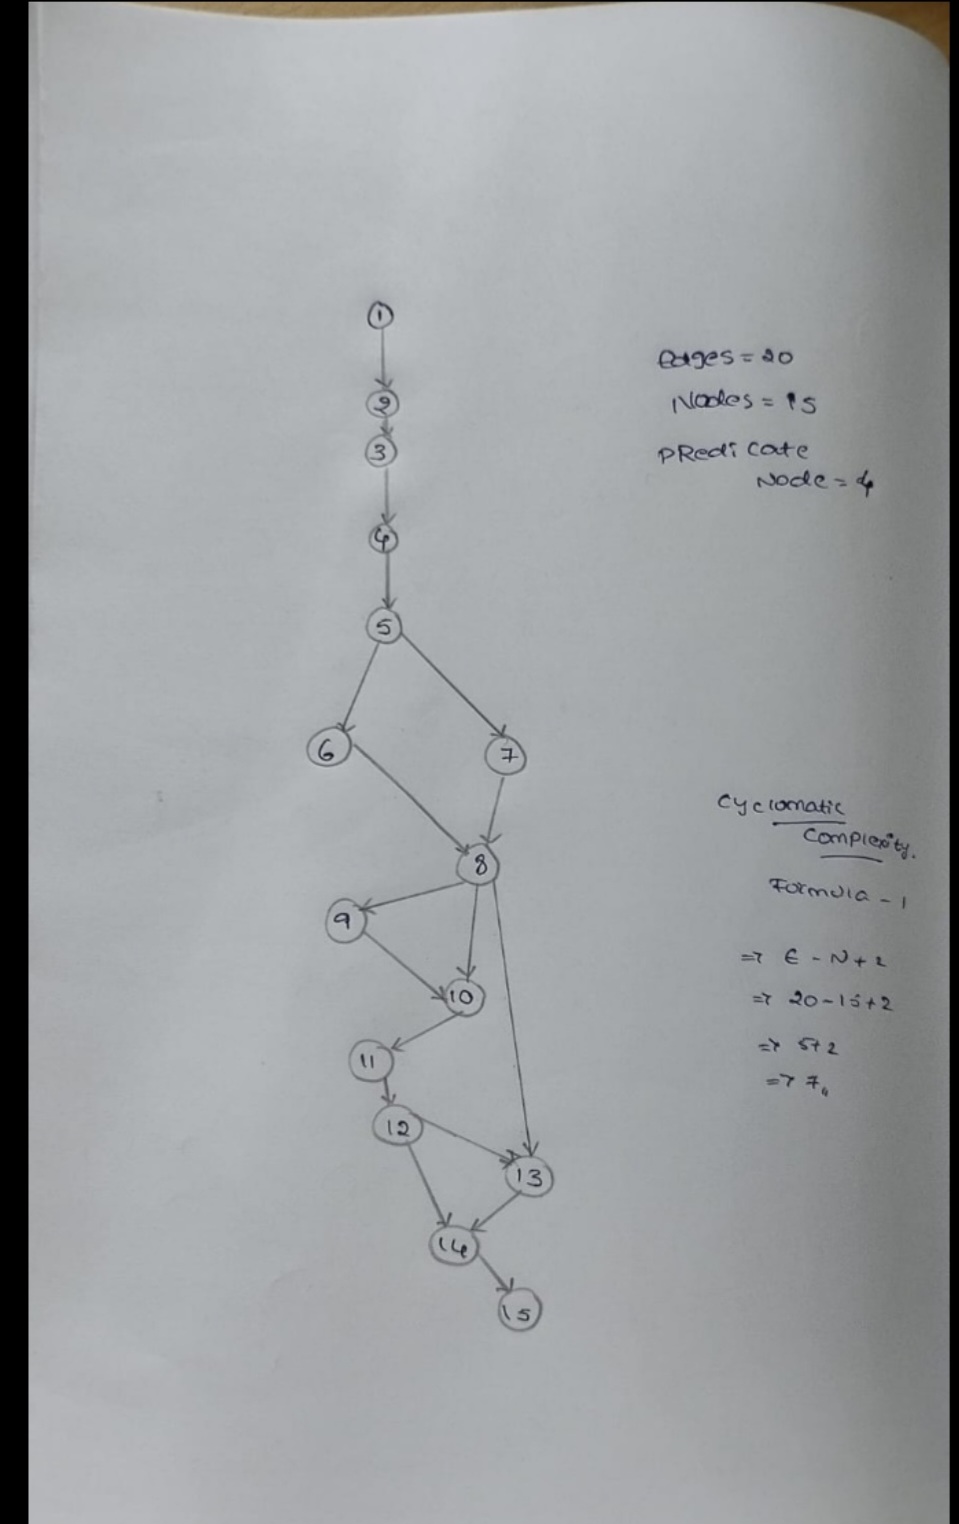 1
2
3
4
5
6
7
8
9
10
11
12
13
14
15
Edges = 20
Nodes = 15
PRedicate
Node = 4
Cyclomatic
Complexity.
Formula - 1
=> E - N + 2
=> 20 - 15 + 2
=> 5+2
=> 7,,